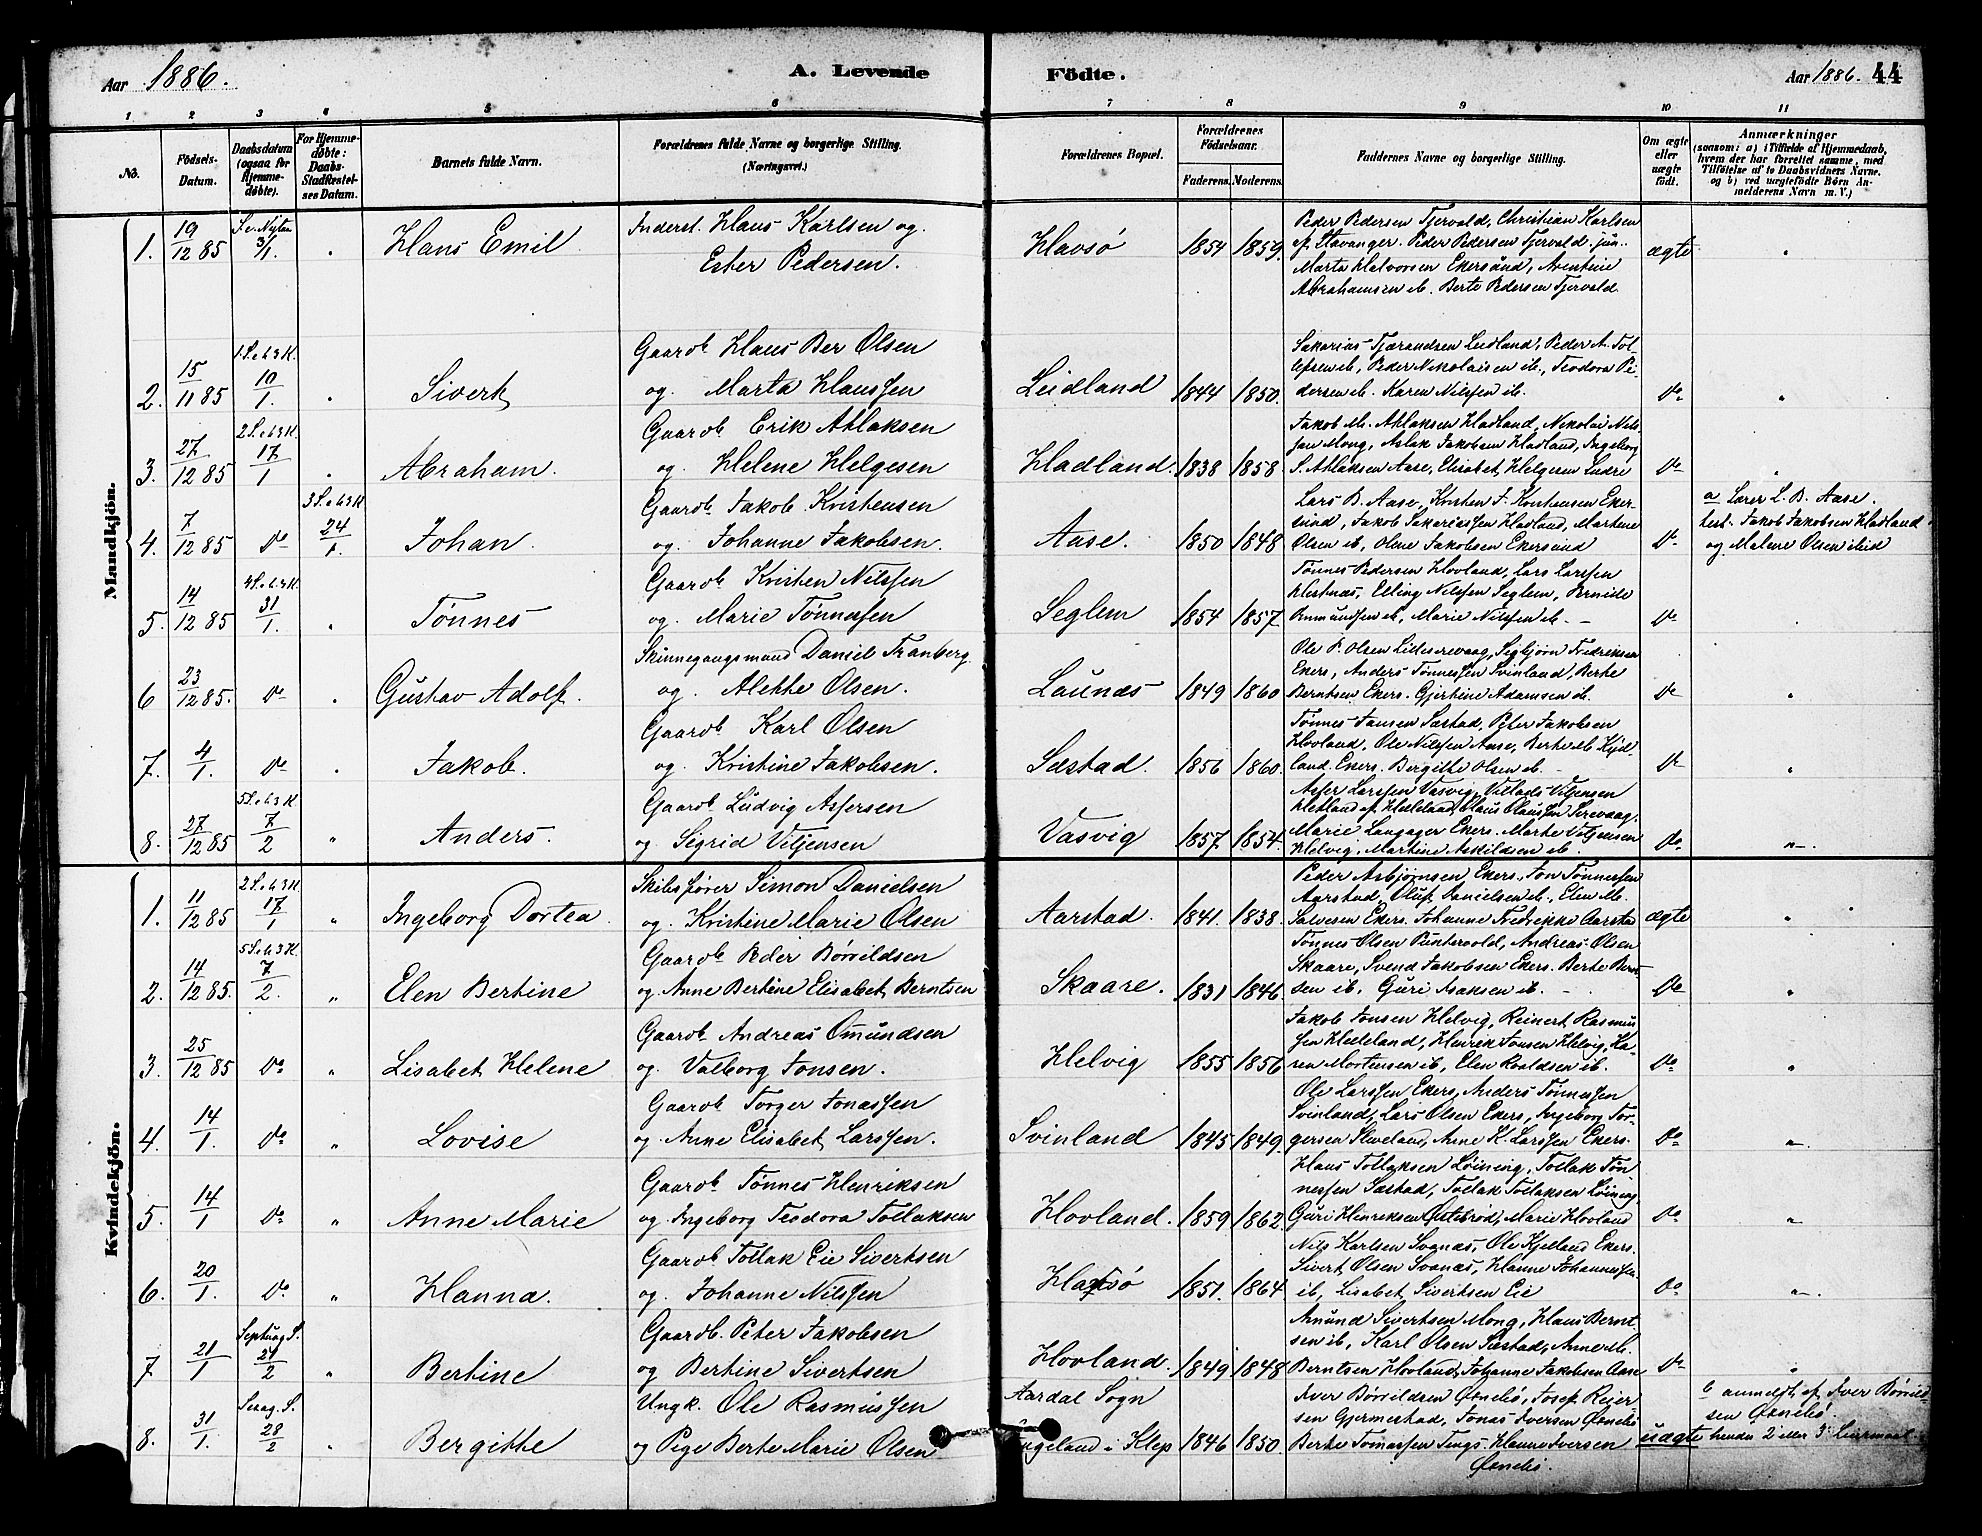 Aar 1886. A. Levende Födte. Aar 1886. 44
1 2 3 4 5 6 7 8 9 10 11
No. Födsels-Datum. Daabsdatum (ogsaa for Hjemmedøbte). For Hjemmedøbte: Daabs-Stadfæstelses Datum. Barnets fulde Navn. Forældrenes fulde Navne og borgerlige Stilling. (Næringsvei.) Forældrenes Bopæl. Forældrenes Födselsaar. Faderens. Moderens. Faddernes Navne og borgerlige Stilling. Om ægte eller uægte födt. Anmærkninger (saasom: a) i Tilfælde af Hjemmedaab, hvem der har forrettet samme, med Tilföielse af to Daabsvidners Navne, og b) ved uægtefödte Börn Anmelderens Navn m. V.)
Mandkjön.
1. 19/12 85 S. e. Nytaar 3/1. " Hans Emil Inderst. Hans Karlsen og Ester Pedersen. Havsø 1854 1859. Peder Pedersen Tjervald, Christian Karlsen
af Stavanger. Peder Pedersen Tjervald jun..
Marta Halvorsen Ekersund, Arentine
Abrahamsen ib. Berte Pedersen Tjervald. ægte "
2. 15/11 85 1.S.e.h.3K. 10/1. " Sivert Gaardb. Hans Ber Olsen
og Marta Hanssen Leidland 1844 1850. Sakarias Tjærandsen Leidland, Peder A. Tollefsen ib, Peder Nikolaisen ib., Teodora Pedersen ib. Karen Nilssen ib. Do "
3. 27/12 85 2S.e.h.3K. 17/1 " Abraham. Gaardb. Erik Ahlaksen
og Helene Helgesen Hadland. 1838 1858. Jakob M. Ahlaksen Hadland, Nikolai Nilssen Mong, Aslak Jakobsen Hadland, Ingeborg
S. Ahlaksen Aase, Elisabet Helgesen Do "
4. 7/12 85 Do 3S.e.h.3K 24/1. Johan. Gaardb. Jakob Kristensen
og Johanne Jakobsen. Aase. 1850 1848 Lars B. Aase, Kristen J. Kristensen Ekersund, Jakob Sakariassen Hadland, Martene
Olsen ib, Oline Jakobsen Ekersund Do a Lærer L. B. Aase.
test. Jakob Jakobsen Hadland
og Malene Olsen ibid
5. 14/12 85 4S.e.h.3K. 31/1. " Tønnes Gaardb. Kristen Nilssen
og Marie Tønnessen Seglem 1854 1857. Tønnes Pedersen Hovland, Lars Larssen
Elling Nilssen Seglem,
Amundsen ib, Marie Nilssen ib - Do
6 23/12 85. Do " Gustav Adolf. Skinnegangsmand Daniel Tranberg
og Alette Olsen. Launæs 1849 1860 Ole P. Olsen Segbjørn Fredriksen
Ekers, Anders Tønnessen Svinland, Berte
Berntsen Ekers. Gjertine Adamsen ib. Do "
7. 4/1. Do " Jakob. Gaardb. Karl Olsen
og Kristine Jakobsen. Sæstad. 1856 1860. Tønnes Jansen Sæstad, Peter Jakobsen
Hovland, Ole Nilssen Aase, Berte M. Kjelland. Ekers. Bergitte Olsen ib. - Do "
8. 27/12 85 5S.e.h.3K 7/2 " Anders. Gaardb. Ludvig Asfersen
og Sigrid Vetjensen Vasvig 1857. 1854. Asfer Larssen Vasvig, Villads Vetjensen
Hetland af Helleland, Claus Olaussen Sirevaag.
Marie Langager Ekers. Marte Vetjensen
Helvig, Martine Askildsen ib. Do "
Kvindekjön.
1. 11/12 85 2S.e.h.3K. 17/1 " Ingeborg Dortea Skibsfører Simon Danielsen
og Kristine Marie Olsen Aarstad. 1841. 1838. Peder Asbjørnsen Ekers., Jon Tønnessen
Aarstad, Oluf Danielsen ib., Elen M.
Salvesen Ekers. Johanne Fredrikke Aarstad ægte "
2. 14/12 85. 5S.e.h.3K. 7/2. " Elen Bertine Gaardb. Peder Børrildsen
og Anne Bertine Elisabet Berntsen Skaare. 1831 1846. Tønnes Olsen Puntervold, Andreas Olsen
Skaare, Svend Jakobsen Ekers. Berte Berntsen ib, Guri Isaksen ib. - Do "
3. 25/12 85 Do " Lisabet Helene Gaardb. Andreas Omundsen
og Valborg Jonsen. Helvig 1855 1856 Jakob Jonsen Helvig, Reinert Rasmussen Helleland, Henrik Jonsen Helvig, Karen Mortensen ib, Elen Roaldsen ib. Do "
4. 14/1. Do " Lovise Gaardb. Torger Jonassen
og Anne Elisabet Larssen. Svinland 1845 1849. Ole Larssen Ekers, Anders Tønnessen
Svinland, Lars Olsen Ekers, Ingeborg Torgersen Anne K. Larssen Ekers. Do "
5. 14/1 Do " Anne Marie Gaardb. Tønnes Henriksen
og Ingeborg Teodora Tollaksen Hovland. 1859 1862. Hans Tollaksen Løining, Tollak Tønnessen Sæstad, Tollak Tollaksen Løining,
Guri Henriksen Ørtebrød, Marie Hovland Do "
6. 20/1. Do " Hanna. Gaardb. Tollak Eie Sivertsen
og Johanne Nilssen Hafsø 1851. 1864. Nils Karlsen Svanæs, Ole Kjelland Ekers.
Sivert Olsen Svanæs, Hanne Johannessen
ib, Lisabet Sivertsen Eie Do "
7 21/1 Septuag. S. 21/2 " Bertine Gaardb. Peter Jakobsen
og Bertine Sivertsen Hovland. 1849 1848 Amund Sivertsen Mong, Hans Berntsen ib, Karl Olsen Sæstad, Anne M.
Berntsen Hovland, Johanne Jakobsen Aase Do "
8. 31/1. Sexag. S. 28/2 " Bergitte Ungk. Ole Rasmussen
og Pige Berte Marie Olsen Aardal Sogn
i Klep 1846 1850. Iver Børrildsen Ørneløs, Josep Reiersen Gjermestad, Jonas Iversen Ørneløs
Berte Tomassen Tengs, Hanne Iversen
Ørneløs. uægte b anmeldt af Iver Børrildsen Ørneløs.
hendes 2 eller 3. Leiermaal.